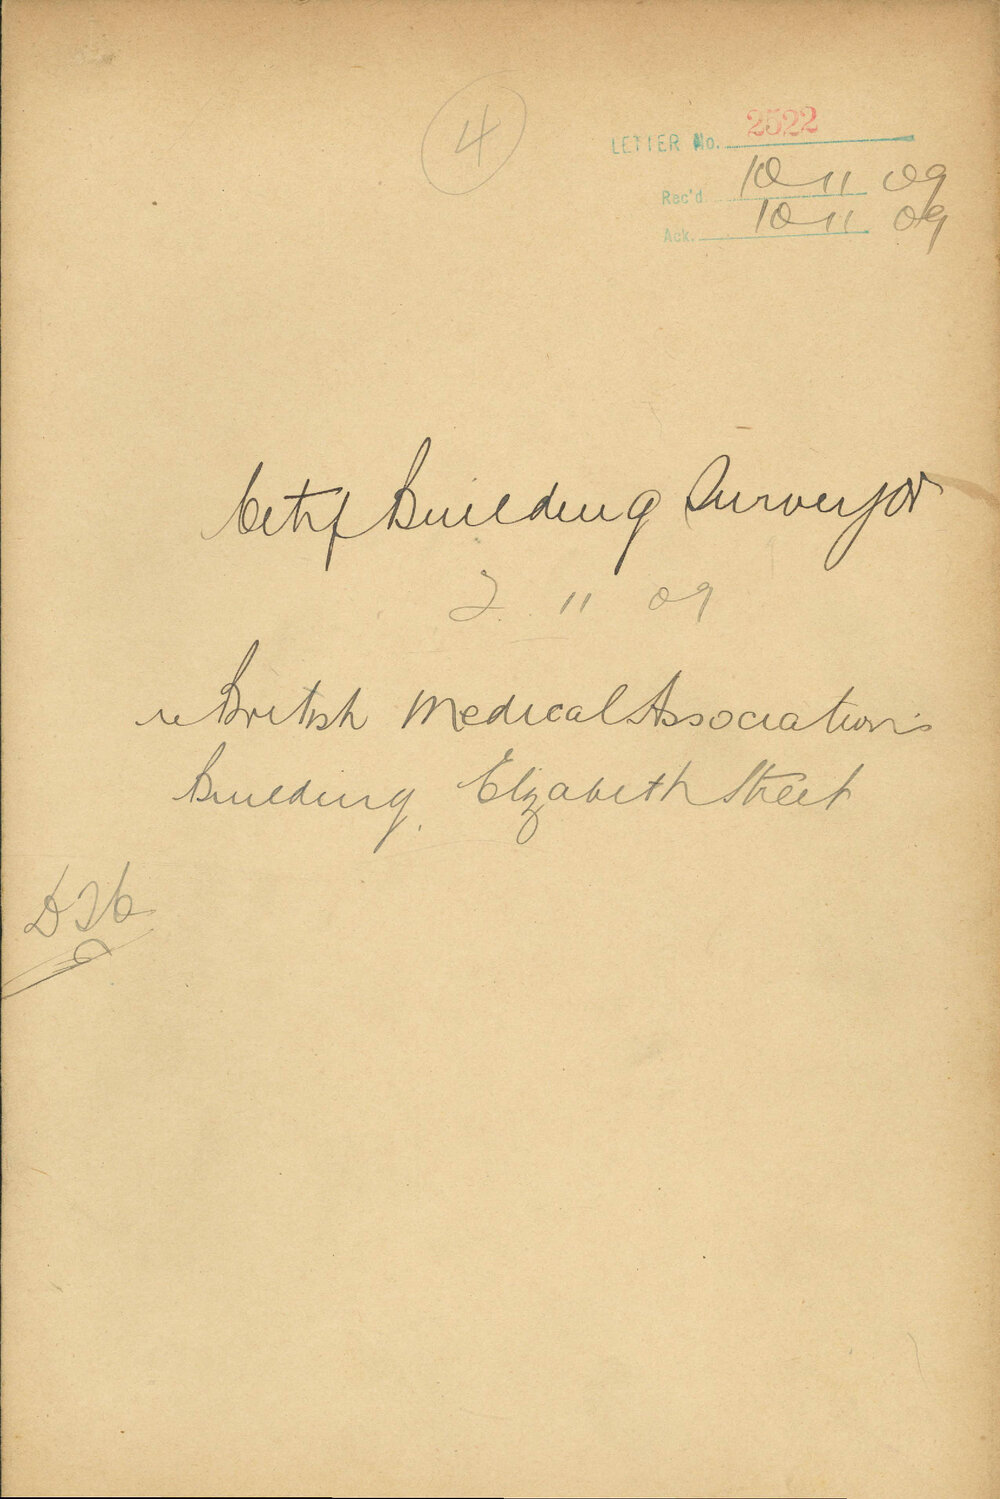 4
LETTER No. 2522
Rec'd 10 11 09
Ack. 10 11 09
City Building Surveyor
2. 11 09
re British Medical Association's
Building, Elizabeth Street